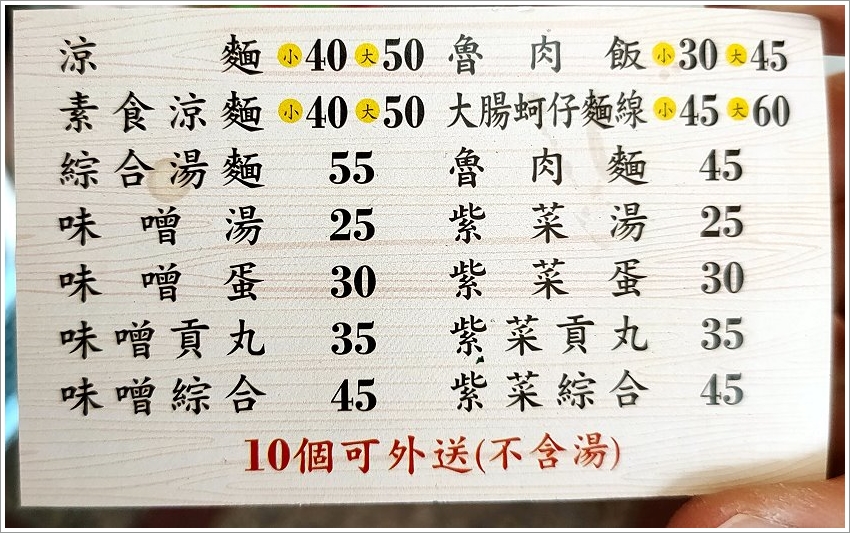 涼麵 小40 大50 魯肉飯 小30 大45
素食涼麵 小40 大50 大腸蚵仔麵線 小45 大60
綜合湯麵 55 魯肉麵 45
味噌湯 25 紫菜湯 25
味噌蛋 30 紫菜蛋 30
味噌貢丸 35 紫菜貢丸 35
味噌綜合 45 紫菜綜合 45
10個可外送(不含湯)